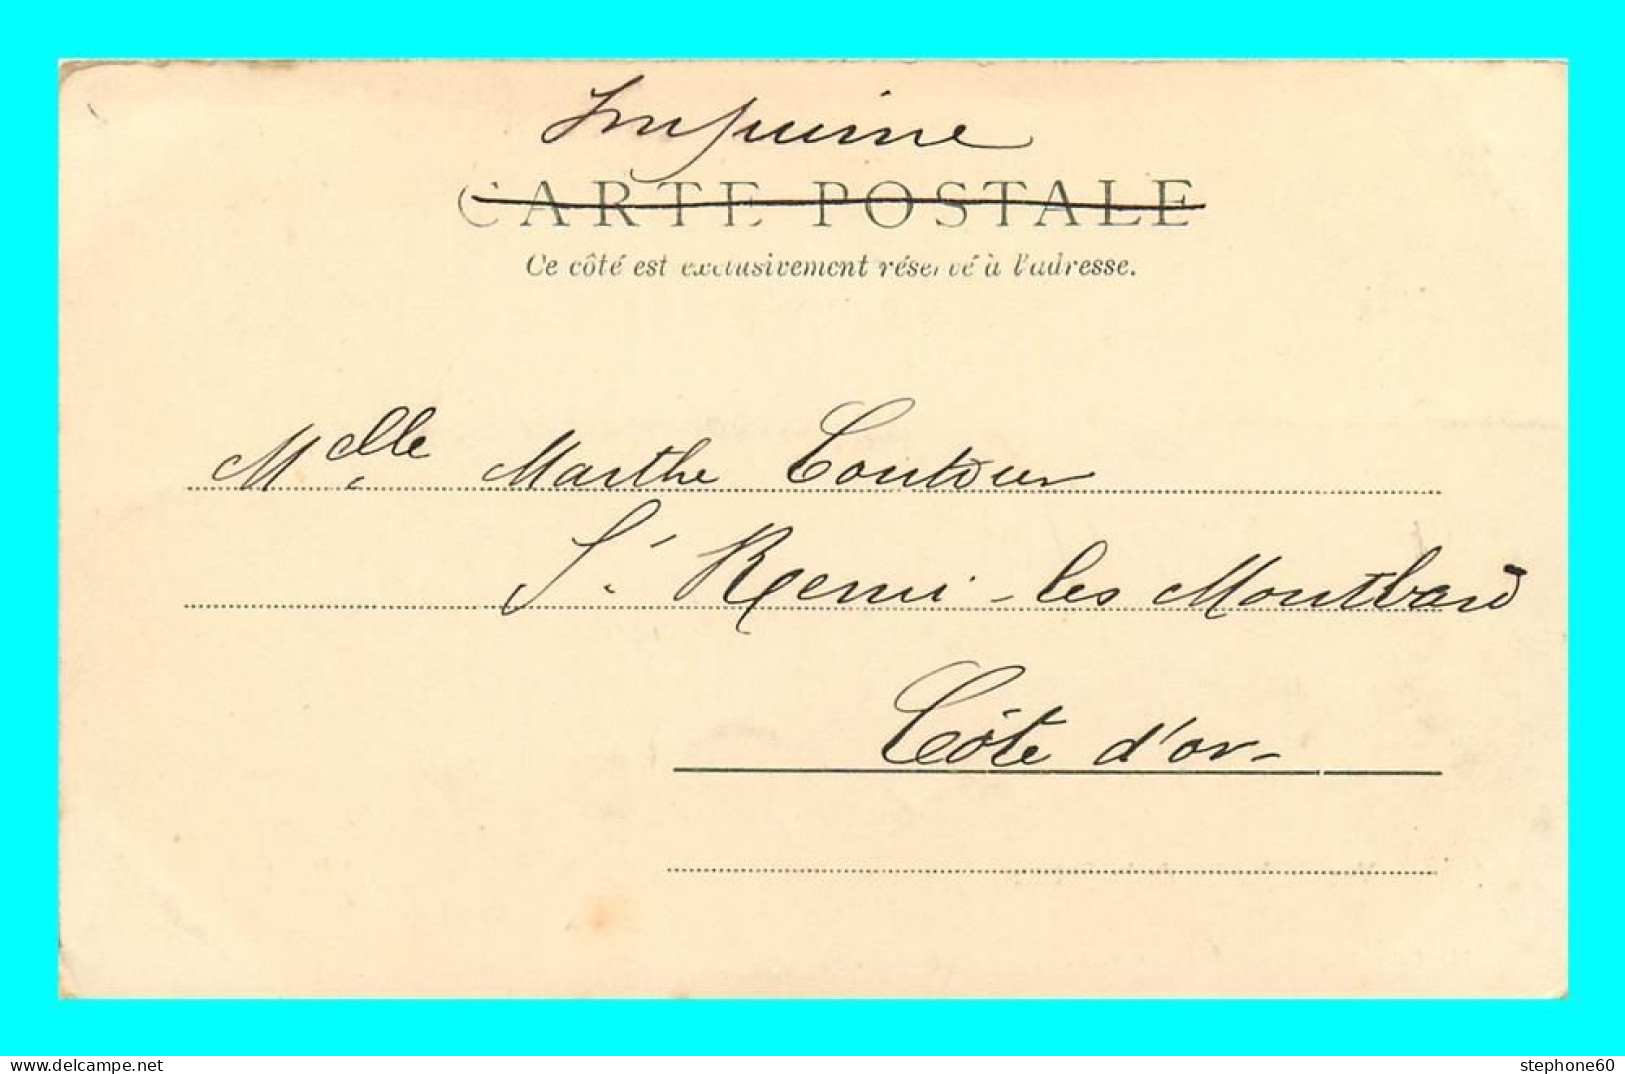 Imprimé
CARTE POSTALE
Ce côté est exclusivement réservé à l'adresse.
Melle Marthe Coutour
St Remi-les Montbard
Côte d'or-
stephone60